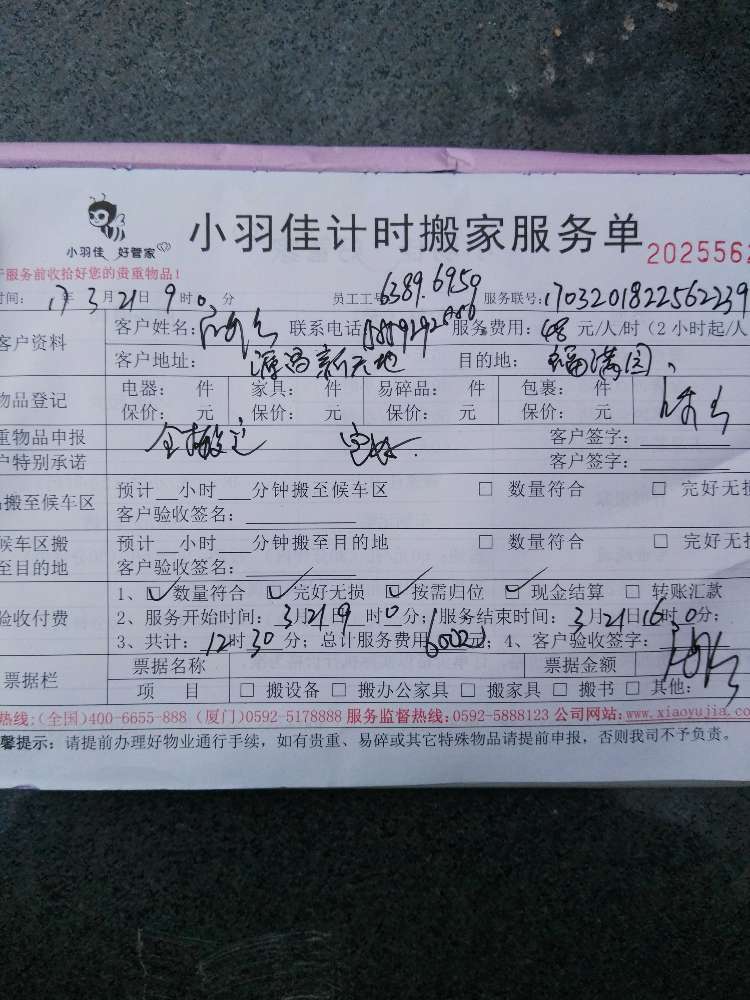 小羽佳 好管家
小羽佳计时搬家服务单 2025562
服务前收拾好您的贵重物品!
时间: 17年3月21日9时0分 员工工号 6389.6959 服务联号: 1703201822562239
客户资料 客户姓名: 联系电话 服务费用: 48 元/人/时(2小时起/人
客户地址: 源昌新天地 目的地: 福满园
物品登记 电器: 件 家具: 件 易碎品: 件 包裹: 件
保价: 元 保价: 元 保价: 元 保价: 元
重物品申报 客户签字:
户特别承诺 客户签字:
搬至候车区 预计__小时___分钟搬至候车区 □ 数量符合 □ 完好无损
客户验收签名:
候车区搬至目的地 预计__小时___分钟搬至目的地 □ 数量符合 □ 完好无损
客户验收签名:
验收付费 1、☑数量符合 ☑完好无损 ☑按需归位 ☑现金结算 □ 转账汇款
2、服务开始时间: 3月21日9时0分; 服务结束时间: 3月21日16时0分;
3、共计: 12时30分; 总计服务费用 600元; 4、客户验收签字:
票据栏 票据名称 票据金额
项 目 □ 搬设备 □ 搬办公家具 □ 搬家具 □ 搬书 □ 其他:
热线:(全国)400-6655-888 (厦门)0592-5178888 服务监督热线:0592-5888123 公司网站:www.xiaoyujia.co
馨提示: 请提前办理好物业通行手续, 如有贵重、易碎或其它特殊物品请提前申报, 否则我司不予负责。